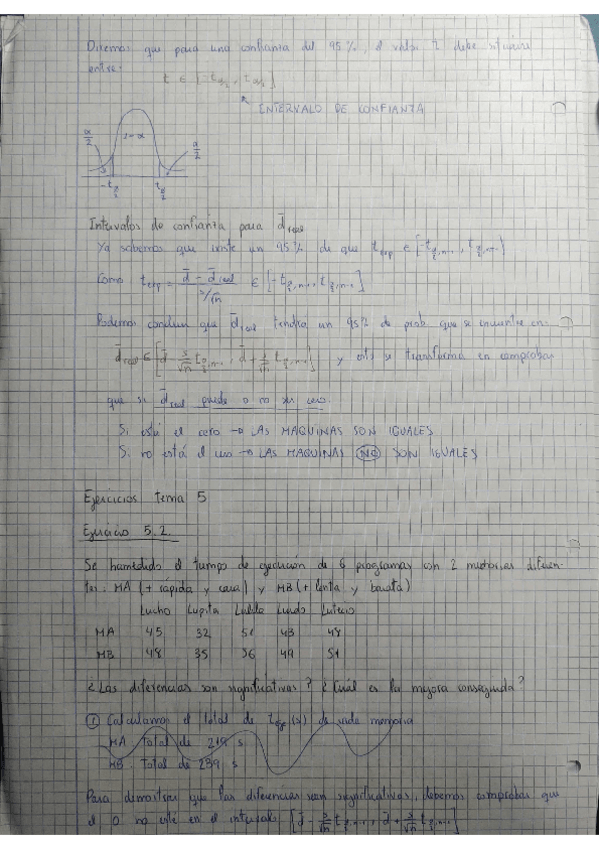 Diremos que para una confianza del 95%, el valor t debe situarse
entre:
t ∈ [-t_{α/2}, t_{α/2}]
↖ INTERVALO DE CONFIANZA
α/2 1-α α/2
-t_{α/2} t_{α/2}
Intervalos de confianza para d̄_real
Ya sabemos que existe un 95% de que t_exp ∈ [-t_{α/2,n-1}, t_{α/2,n-1}]
Como t_exp = (d̄ - d̄_real)/(s/√n) ∈ [-t_{α/2,n-1}, t_{α/2,n-1}]
Podemos concluir que d̄_real tendrá un 95% de prob que se encuentre en:
d̄_real ∈ [d̄ - s/√n t_{α/2,n-1}, d̄ + s/√n t_{α/2,n-1}] y esto se transforma en comprobar
que si d̄_real puede o no ser cero.
Si está el cero → LAS MAQUINAS SON IGUALES
Si no está el cero → LAS MAQUINAS NO SON IGUALES
Ejercicios tema 5
Ejercicio 5.2.
Se han medido el tiempo de ejecución de 6 programas con 2 memorias diferen-
tes: MA (+ rápida y cara) y MB (+ lenta y barata)
Lucho Lupita Lundo Lutecio
MA 45 32 51 43 48
MB 48 35 56 49 51
¿Las diferencias son significativas? ¿Cuál es la mejora conseguida?
① Calculamos el total de t_eje(s) de cada memoria
MA Total de 219 s
MB Total de 239 s
Para demostrar que las diferencias sean significativas, debemos comprobar que
el 0 no esté en el intervalo [d̄ - s/√n t_{α/2,n-1}, d̄ + s/√n t_{α/2,n-1}]